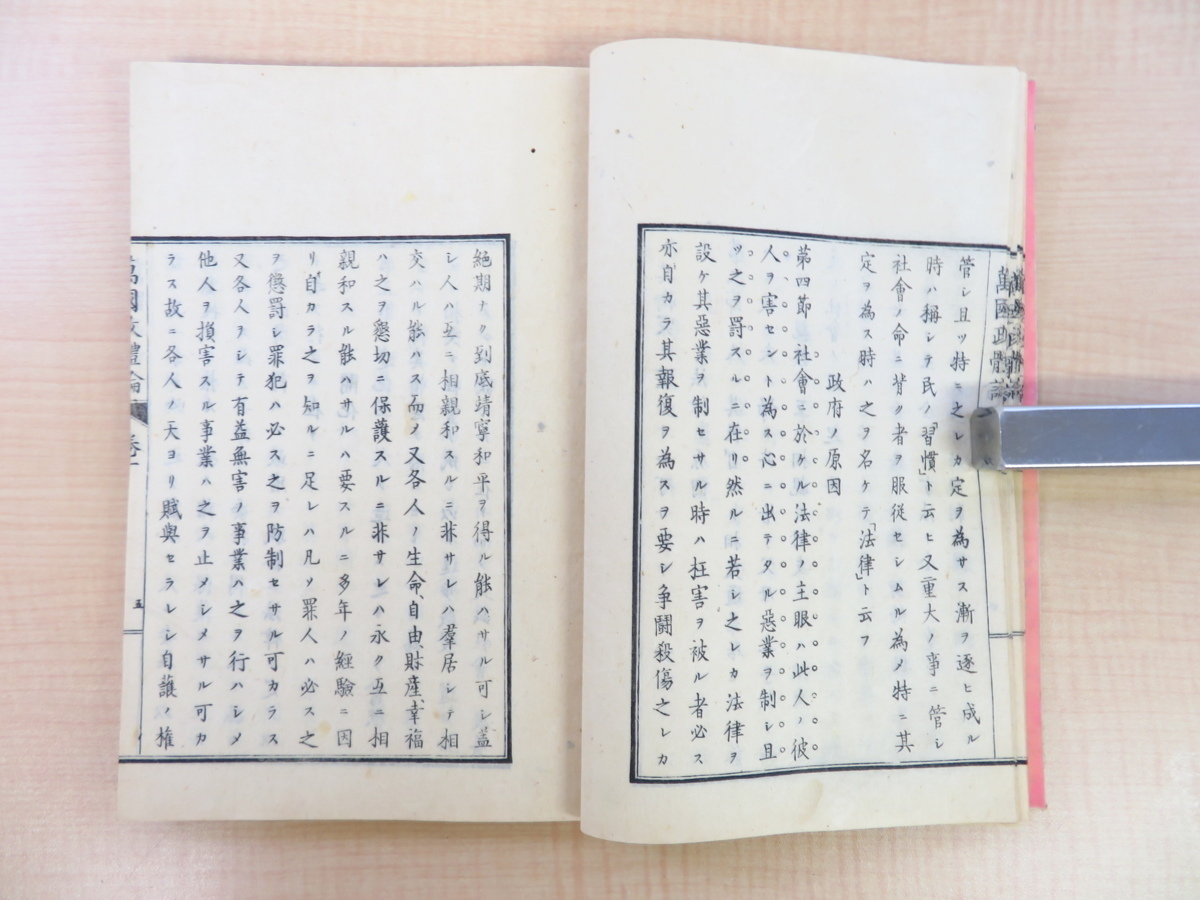 萬國政體論
管シ且ツ特ニ之レカ定ヲ為サス漸ヲ逐ヒ成ル
時ハ稱シテ民ノ「習慣」ト云ヒ又重大ノ事ニ管シ
社會ノ命ニ背ク者ヲ服從セシムル為メ特ニ其
定ヲ為ス時ハ之ヲ名ケテ「法律」ト云フ
政府ノ原因
第四節 社會ニ於ケル法律ノ主眼ハ此人ノ彼
人ヲ害セントス為ス心ニ出テタル惡業ヲ制シ且
ツ之ヲ罰スルニ在リ然ルニ若シ之レカ法律ヲ
設ケ其惡業ヲ制セサル時ハ枉害ヲ被ル者必ス
亦自カラ其報復ヲ為スヲ要シ争鬪殺傷之レカ
絶期ナク到底靖寧和平ヲ得ル能ハサル可シ蓋
シ人ハ互ニ相親和スルニ非サレハ羣居シテ相
交ハル能ハス而メ又各人ノ生命、自由、財產、幸福
ハ之ヲ懇切ニ保護スルニ非サレハ永ク互ニ相
親和スル能ハサルハ要スルニ多年ノ經驗ニ因
リ自カラ之ヲ知ルニ足レハ凡ソ罪人ハ必ス之
ヲ懲罰シ罪犯ハ必ス之ヲ防制セサル可カラス
又各人ヲシテ有益無害ノ事業ハ之ヲ行ハシメ
他人ヲ損害スル事業ハ之ヲ止メシメサル可カ
ラス故ニ各人ノ天ヨリ賦與セラレシ自護ノ權
萬國政體論 卷一
五